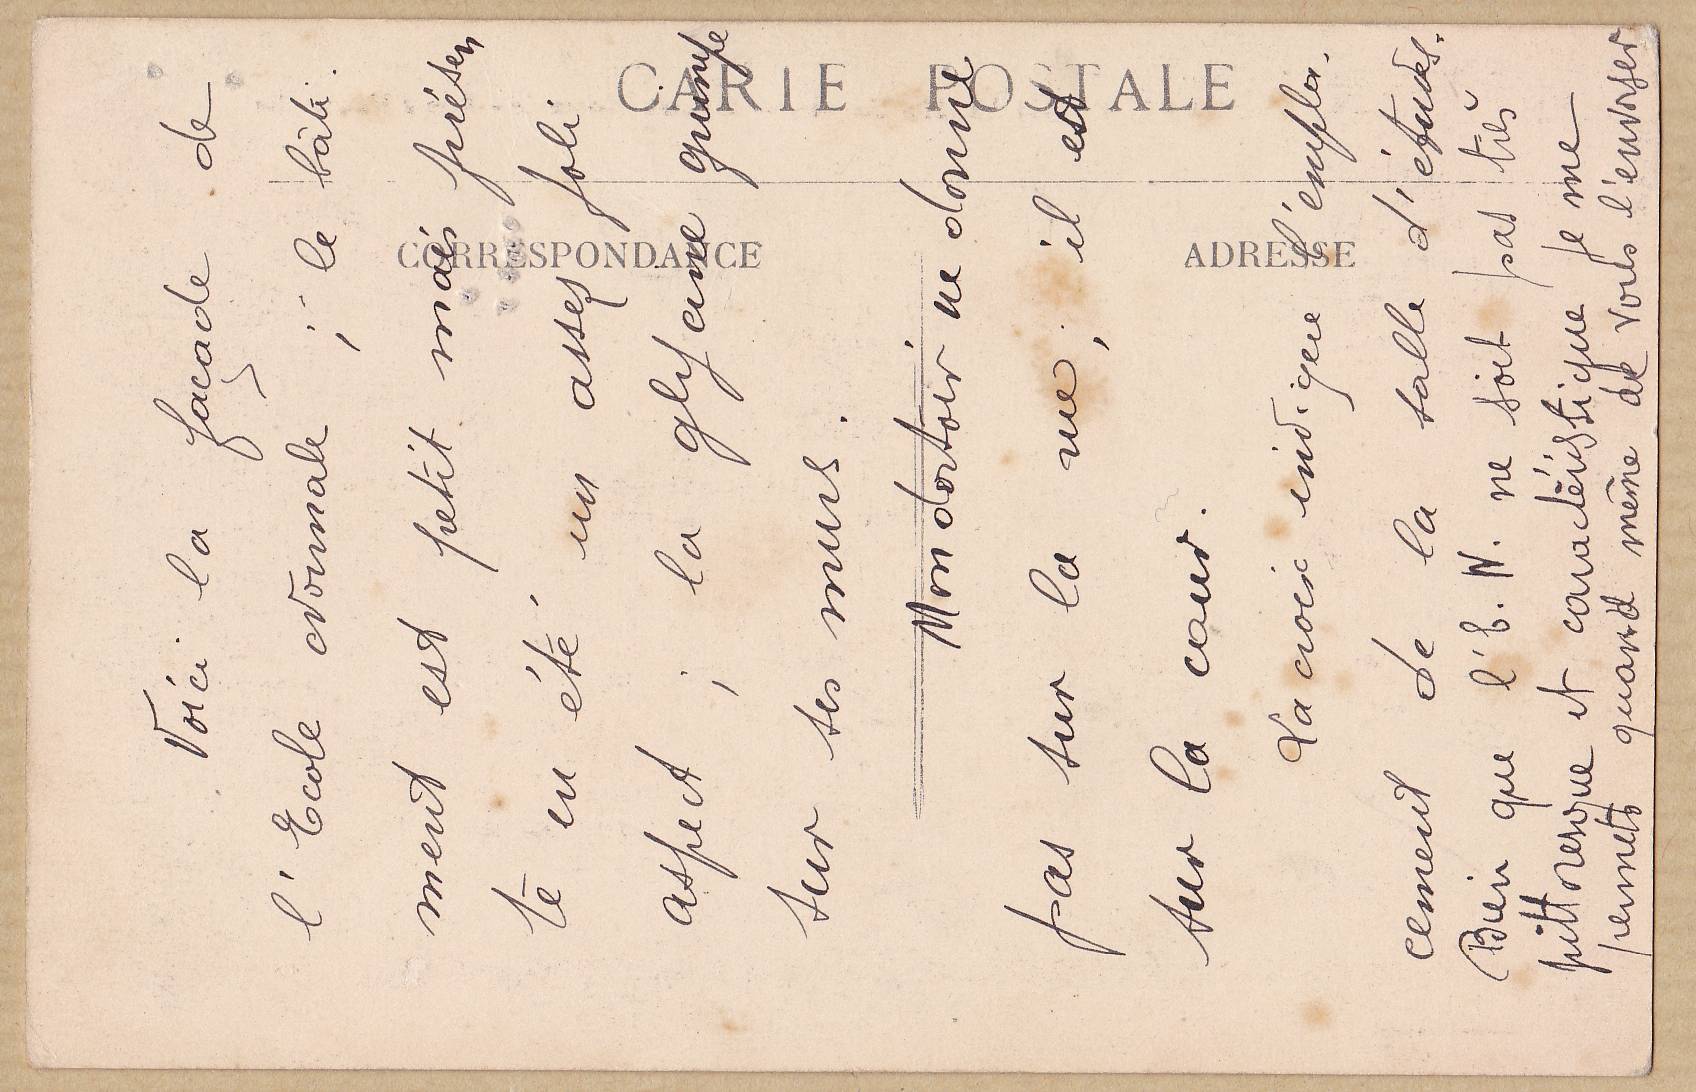 CARTE POSTALE
CORRESPONDANCE
ADRESSE
Voici la façade de
l'Ecole normale ; le bâti-
ment est petit mais présen
te en été, un assez joli
aspect ; la glycine grimpe
sur ses murs.
Mon dortoir ne donne
pas sur la rue ; il est
sur la cour.
La croix indique l'empla-
cement de la salle d'études.
Bien que l'E.N. ne soit pas très
pittoresque et caractéristique je me
permets quand même de vous l'envoyer